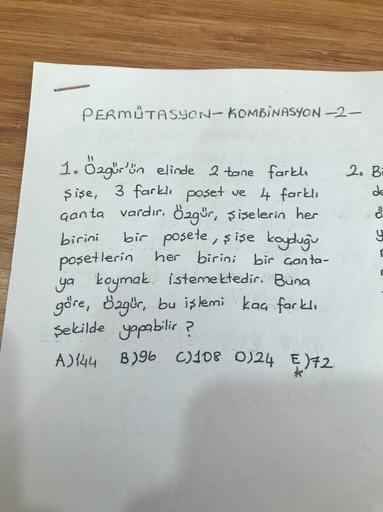 PERMÜTASYON-KOMBİNASYON -2-
1. Özgür'ün elinde 2 tane farklı
şişe, 3 farklı poşet ve 4 farklı
çanta vardır. Özgür, şişelerin her
birini bir poşete, şişe koyduğu
poşetlerin her birini bir çanta-
ya koymak istemektedir. Buna
göre, Özgür, bu işlemi kaç farklı
şekilde yapabilir?
A)144 B)96 C)108 D)24 E)72
2. Bi